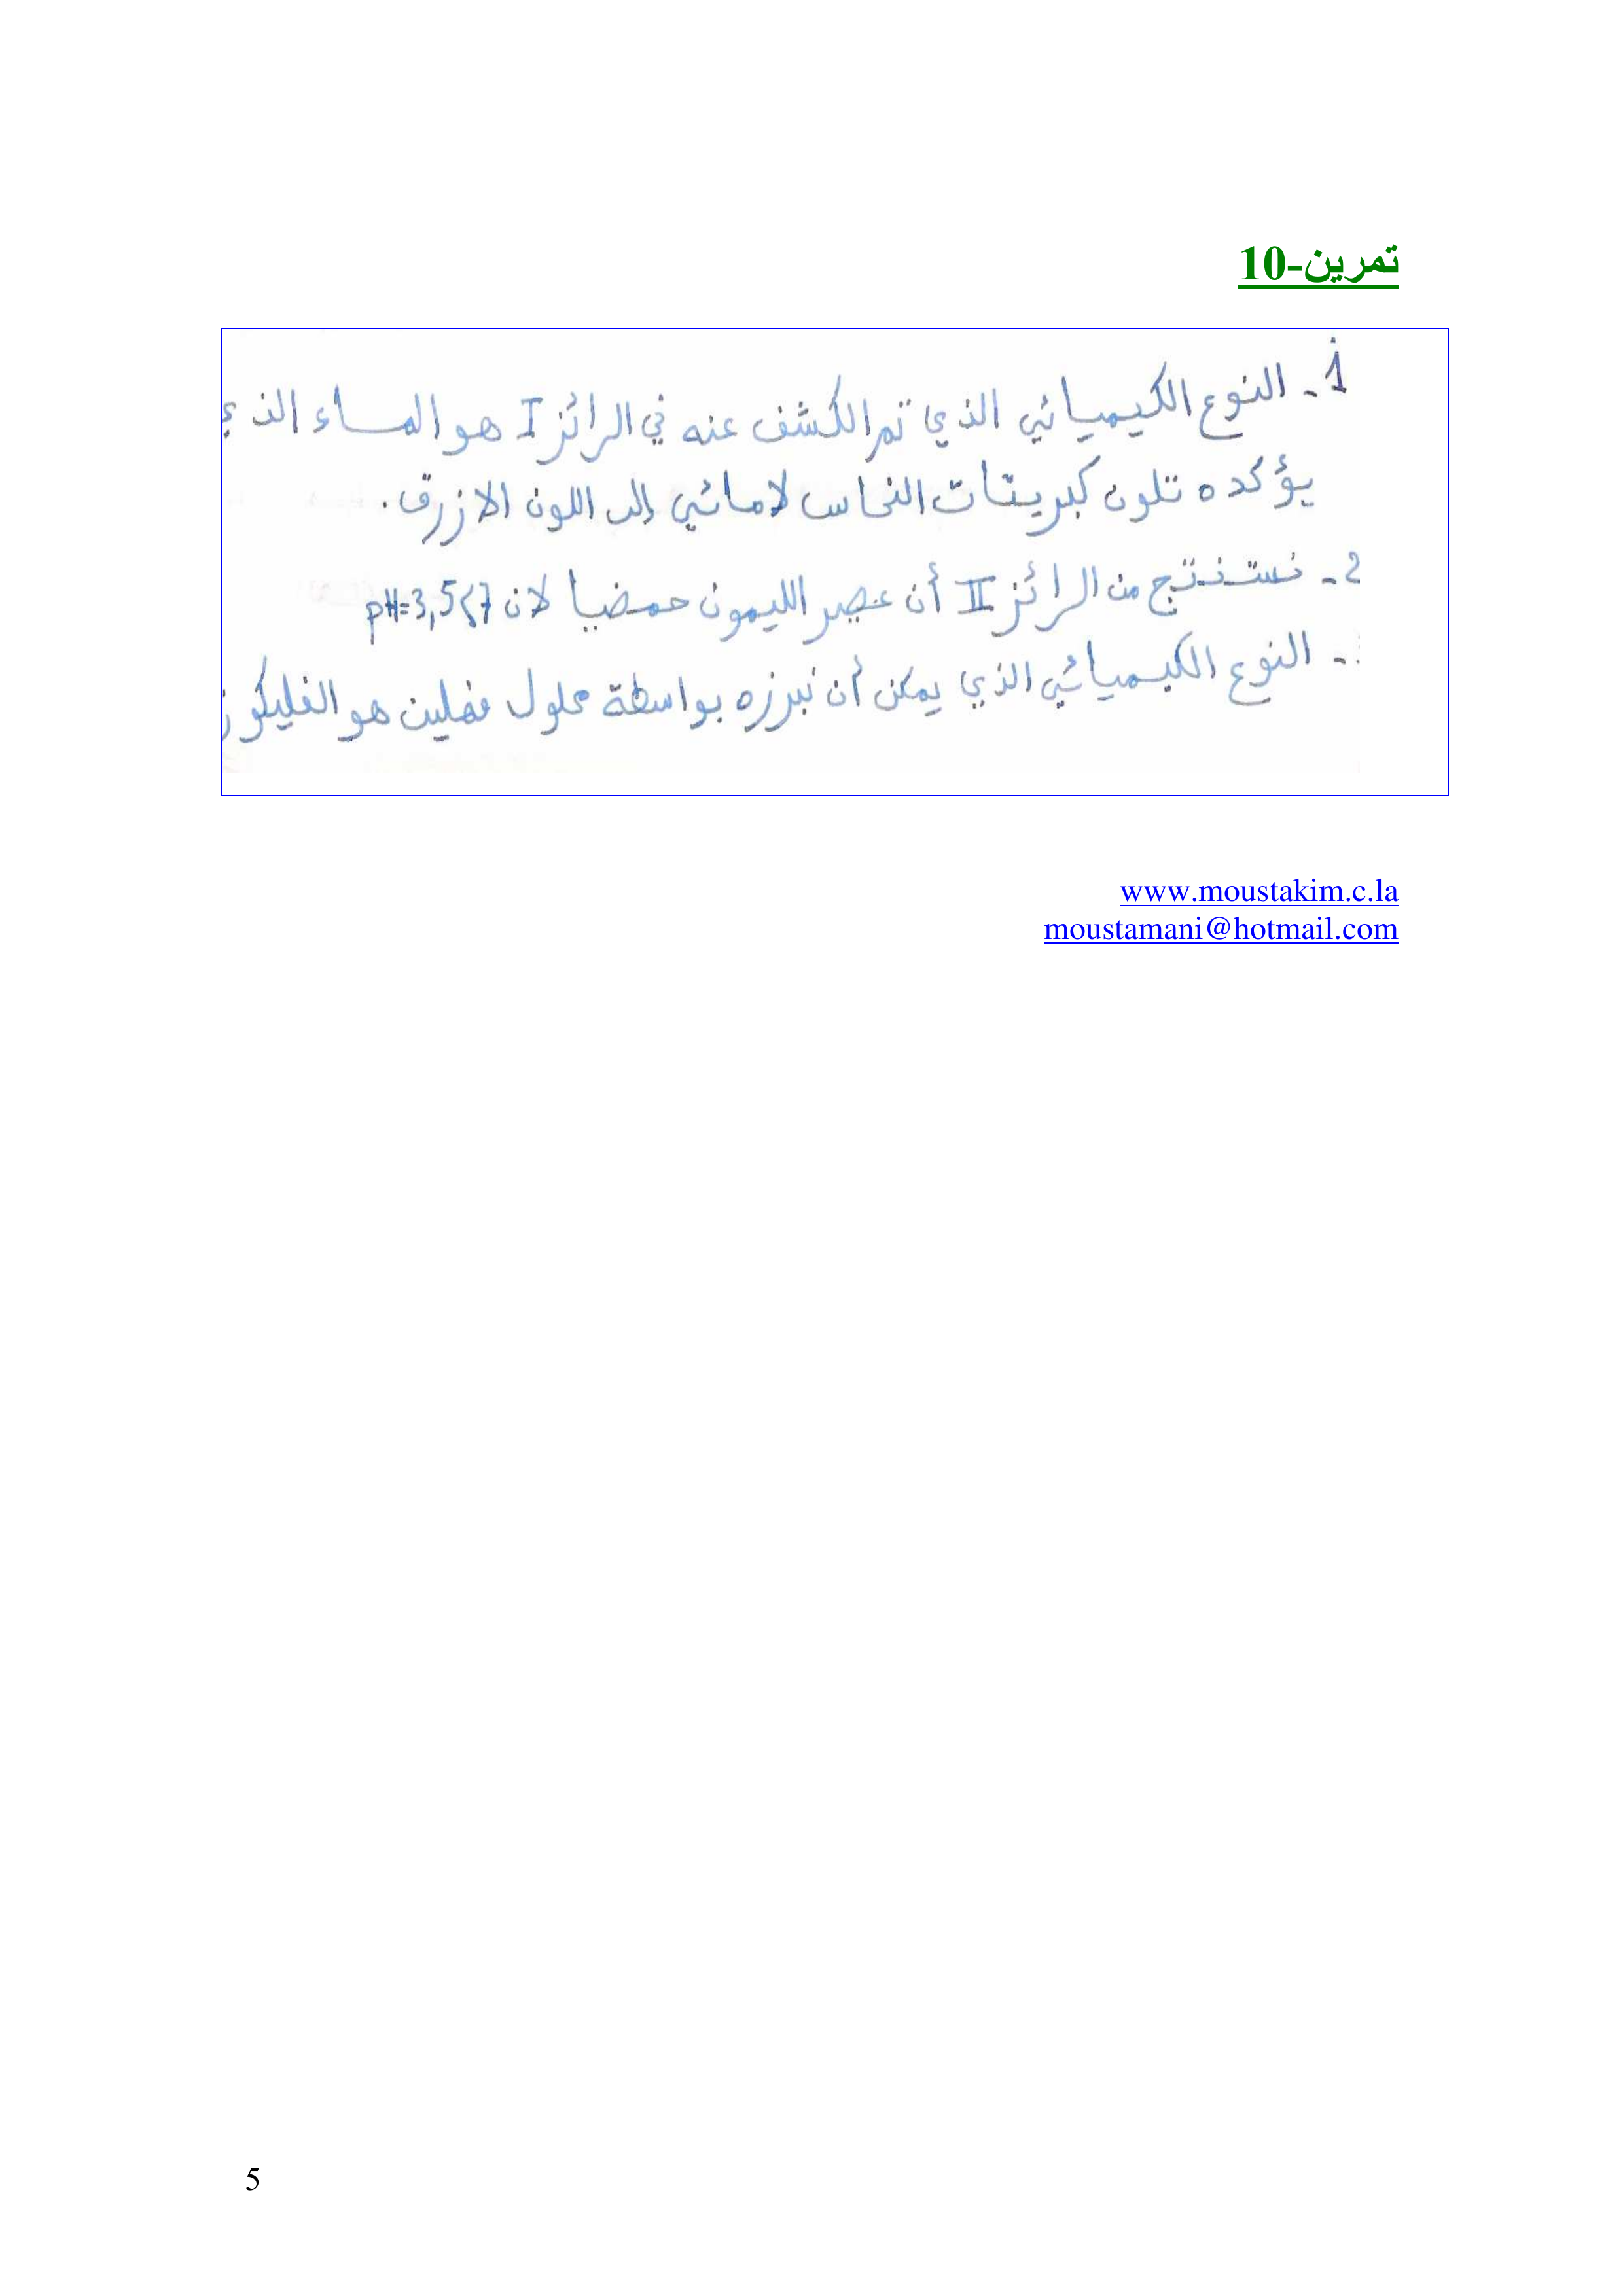 تمرين-10
1- النوع الكيميائي الذي تم الكشف عنه في الرائز I هو الماء الذي
يؤكده تلون كبريتات النحاس لامائي إلى اللون الازرق.
2- نستنتج من الرائز II أن عصير الليمون حمضيا لان pH=3,5<7
- النوع الكيميائي الذي يمكن أن نبرزه بواسطة محلول فهلين هو الغليكوز
www.moustakim.c.la
moustamani@hotmail.com
5